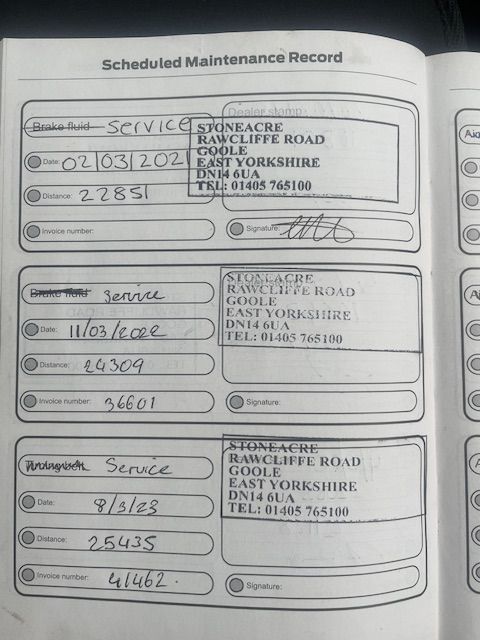 Scheduled Maintenance Record
Brake fluid Service
Dealer stamp:
STONEACRE
RAWCLIFFE ROAD
GOOLE
EAST YORKSHIRE
DN14 6UA
TEL: 01405 765100
Date: 02/03/2021
Distance: 22851
Invoice number:
Signature:
Brake fluid Service
STONEACRE
RAWCLIFFE ROAD
GOOLE
EAST YORKSHIRE
DN14 6UA
TEL: 01405 765100
Date: 11/03/2022
Distance: 24309
Invoice number: 36601
Signature:
Service
STONEACRE
RAWCLIFFE ROAD
GOOLE
EAST YORKSHIRE
DN14 6UA
TEL: 01405 765100
Date: 8/3/23
Distance: 25435
Invoice number: 41462.
Signature: